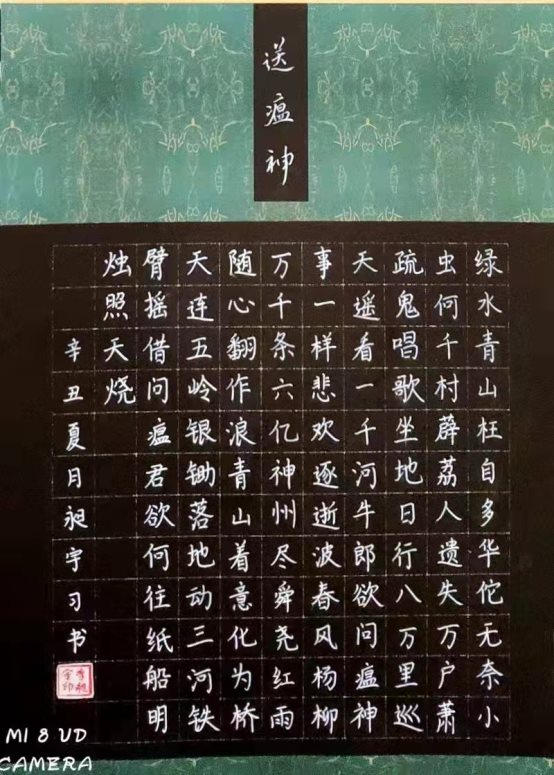 送瘟神
绿水青山枉自多华佗无奈小
虫何千村薜荔人遗失万户萧
疏鬼唱歌坐地日行八万里巡
天遥看一千河牛郎欲问瘟神
事一样悲欢逐逝波春风杨柳
万千条六亿神州尽舜尧红雨
随心翻作浪青山着意化为桥
天连五岭银锄落地动三河铁
臂摇借问瘟君欲何往纸船明
烛照天烧
辛丑夏月昶宇习书
MI 8 UD
CAMERA